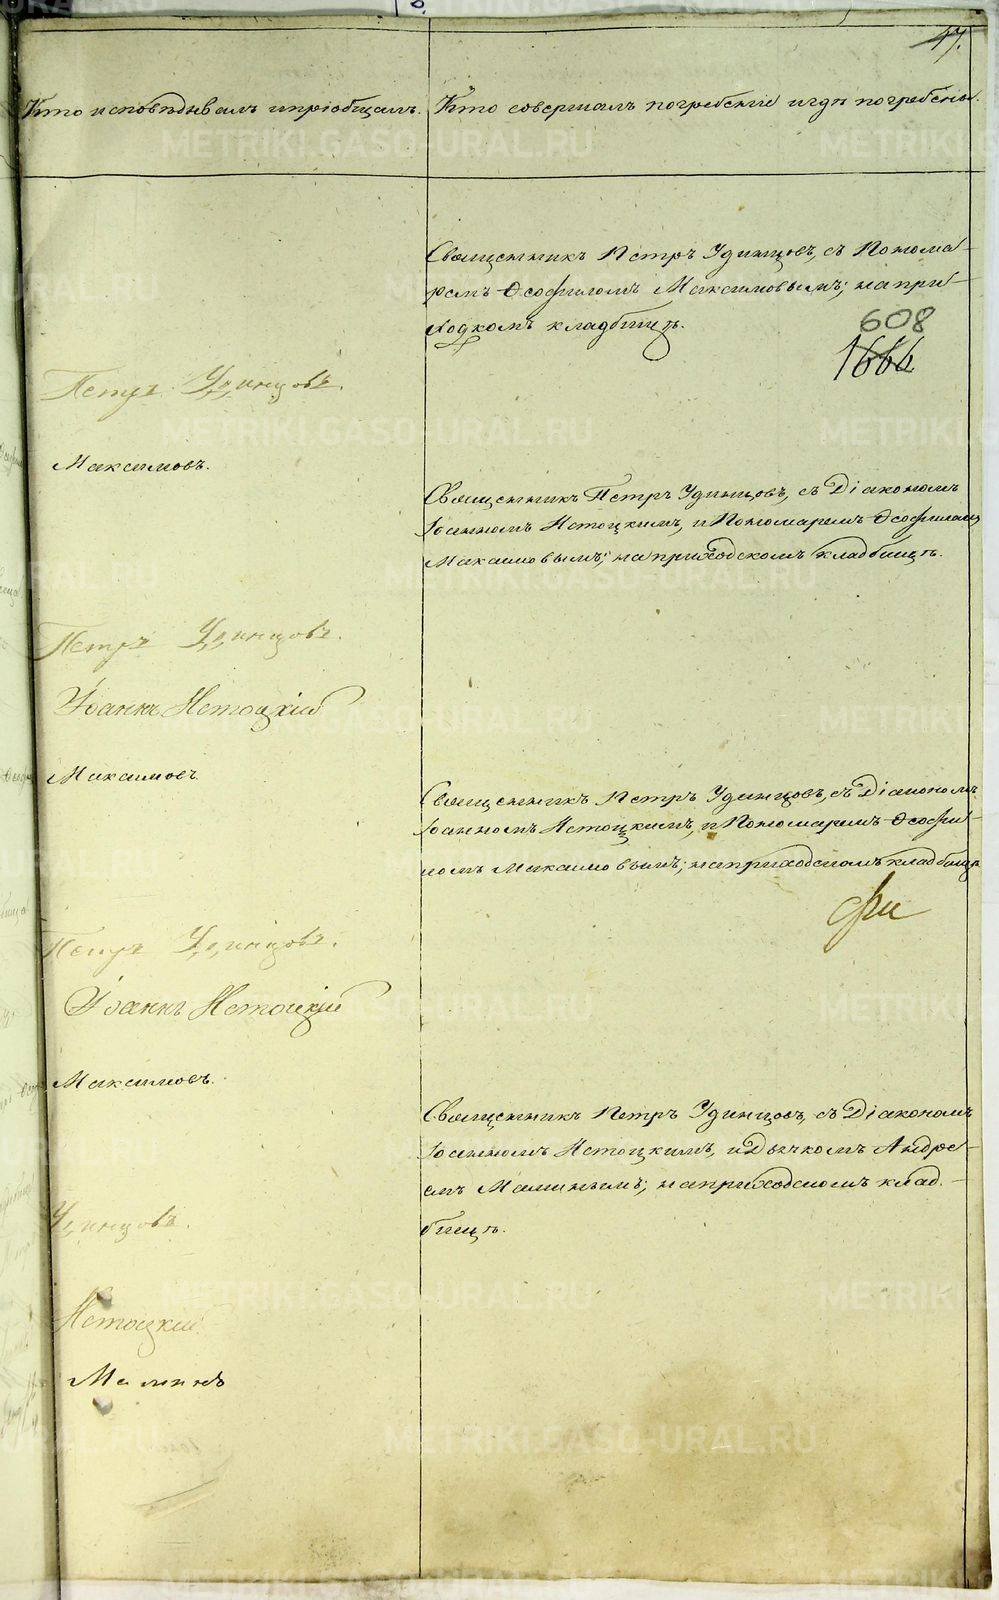 47.
Кто исповѣдывалъ и пріобщалъ.
Кто совершалъ погребеніе и гдѣ погребены.
Священникъ Петръ Удинцовъ, съ Понома-
ремъ Ѳеофиломъ Максимовымъ; на при-
ходскомъ кладбищѣ.
608
1666
Петръ Удинцовъ.
Максимовъ.
Священникъ Петръ Удинцовъ, съ Діакономъ
Іоанномъ Нетоцкимъ, и Пономаремъ Ѳеофиломъ
Максимовымъ; на приходскомъ кладбищѣ.
Петръ Удинцовъ.
Іоаннъ Нетоцкій
Максимовъ
Священникъ Петръ Удинцовъ, съ Діакономъ
Іоанномъ Нетоцкимъ, и Пономаремъ Ѳеофи-
ломъ Максимовымъ; на приходскомъ кладбищѣ
Петръ Удинцовъ.
Іоаннъ Нетоцкій
Максимовъ.
Священникъ Петръ Удинцовъ, съ Діакономъ
Іоанномъ Нетоцкимъ, и Дьячкомъ Андре-
емъ Маминымъ; на приходскомъ клад-
бищѣ.
Удинцовъ.
Нетоцкій
Маминъ
METRIKI.GASO-URAL.RU